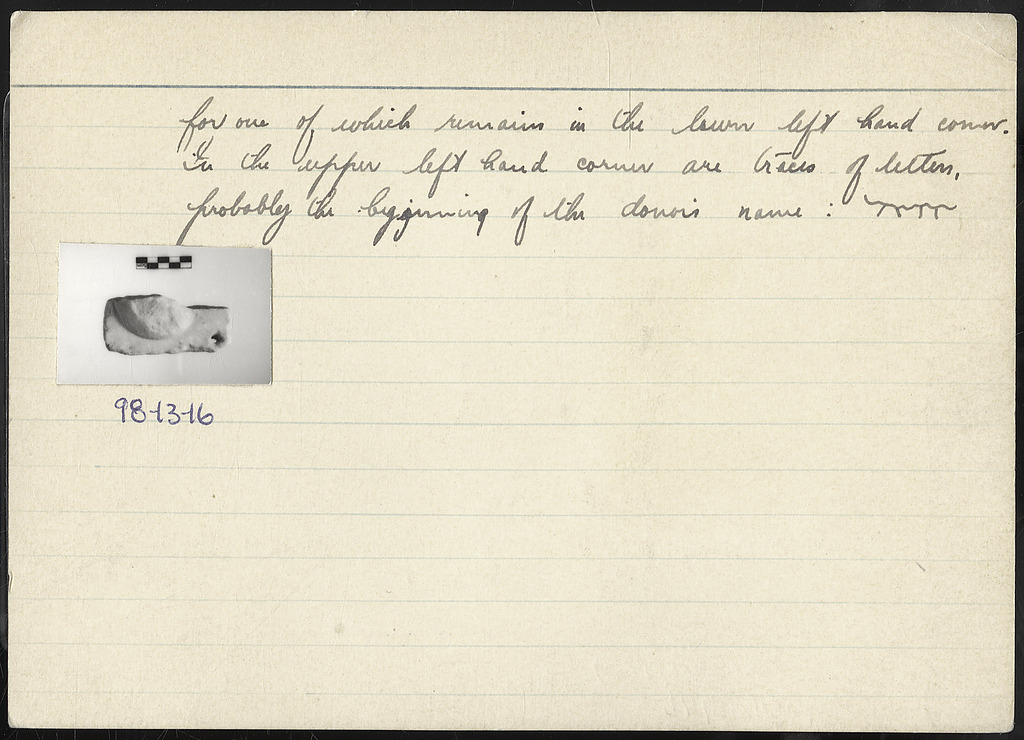 for one of which remains in the lower left hand corner.
In the upper left hand corner are traces of letters,
probably the beginning of the donor's name :
98-13-16